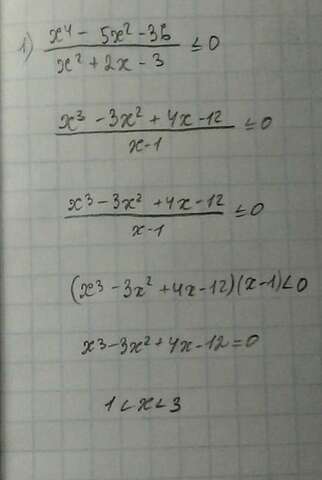 1) (x⁴ - 5x² - 36)/(x² + 2x - 3) ≤ 0
(x³ - 3x² + 4x - 12)/(x - 1) ≤ 0
(x³ - 3x² + 4x - 12)/(x - 1) ≤ 0
(x³ - 3x² + 4x - 12)(x - 1) < 0
x³ - 3x² + 4x - 12 = 0
1 < x < 3